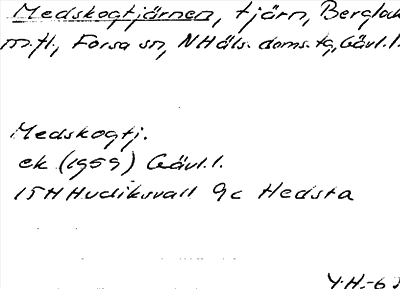 Medskogtjärnen, tjärn, Berglock
m.fl., Forsa sn, NHäls. doms. tg, Gävl. l.
Medskogtj.
ek (1959) Gävl. l.
15H Hudiksvall 9c Hedsta
Y.H.-6